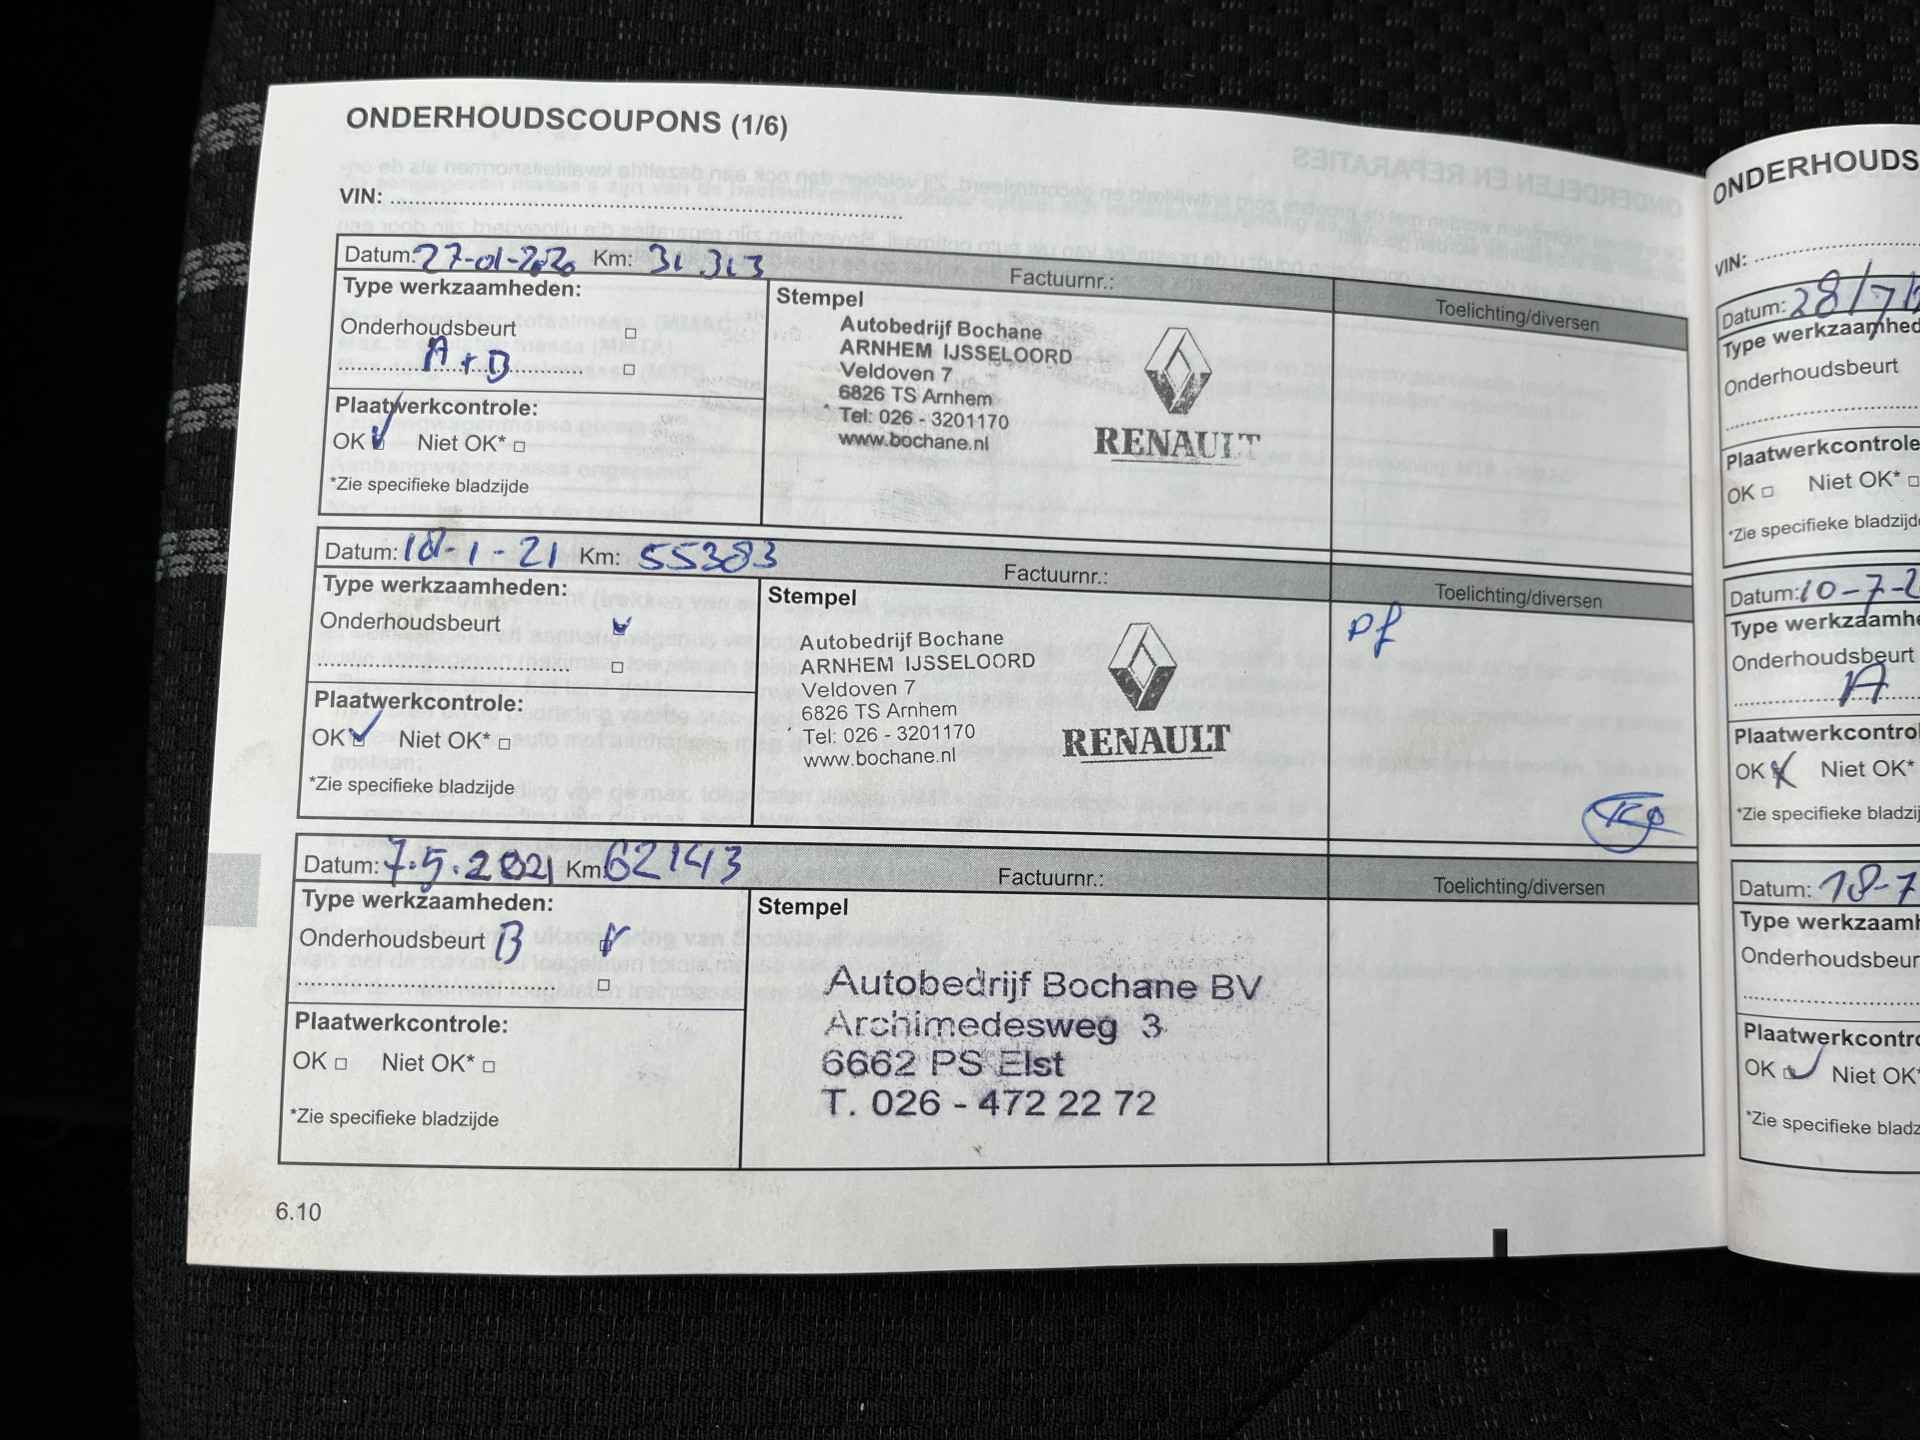 ONDERHOUDSCOUPONS (1/6)
VIN:
Datum: 27-01-2020 Km: 31.313 Factuurnr.:
Toelichting/diversen
Type werkzaamheden:
Onderhoudsbeurt
A + B
Plaatwerkcontrole:
OK Niet OK*
*Zie specifieke bladzijde
Stempel
Autobedrijf Bochane
ARNHEM IJSSELOORD
Veldoven 7
6826 TS Arnhem
Tel: 026 - 3201170
www.bochane.nl
RENAULT
Datum: 18-1-21 Km: 55383 Factuurnr.:
Toelichting/diversen
Type werkzaamheden:
Onderhoudsbeurt
Plaatwerkcontrole:
OK Niet OK*
*Zie specifieke bladzijde
Stempel
Autobedrijf Bochane
ARNHEM IJSSELOORD
Veldoven 7
6826 TS Arnhem
Tel: 026 - 3201170
www.bochane.nl
RENAULT
Pf
Datum: 7.5.2021 Km: 62143 Factuurnr.:
Toelichting/diversen
Type werkzaamheden:
Onderhoudsbeurt B
Plaatwerkcontrole:
OK Niet OK*
*Zie specifieke bladzijde
Stempel
Autobedrijf Bochane BV
Archimedesweg 3
6662 PS Elst
T. 026 - 472 22 72
6.10
ONDERHOUDS
VIN:
Datum: 28/7/
Type werkzaamhed
Onderhoudsbeurt
Plaatwerkcontrole
OK Niet OK*
*Zie specifieke bladzijde
Datum: 10-7-2
Type werkzaamhe
Onderhoudsbeurt
A
Plaatwerkcontrol
OK Niet OK*
*Zie specifieke bladzij
Datum: 18-7
Type werkzaamh
Onderhoudsbeur
Plaatwerkcontro
OK Niet OK*
*Zie specifieke bladz